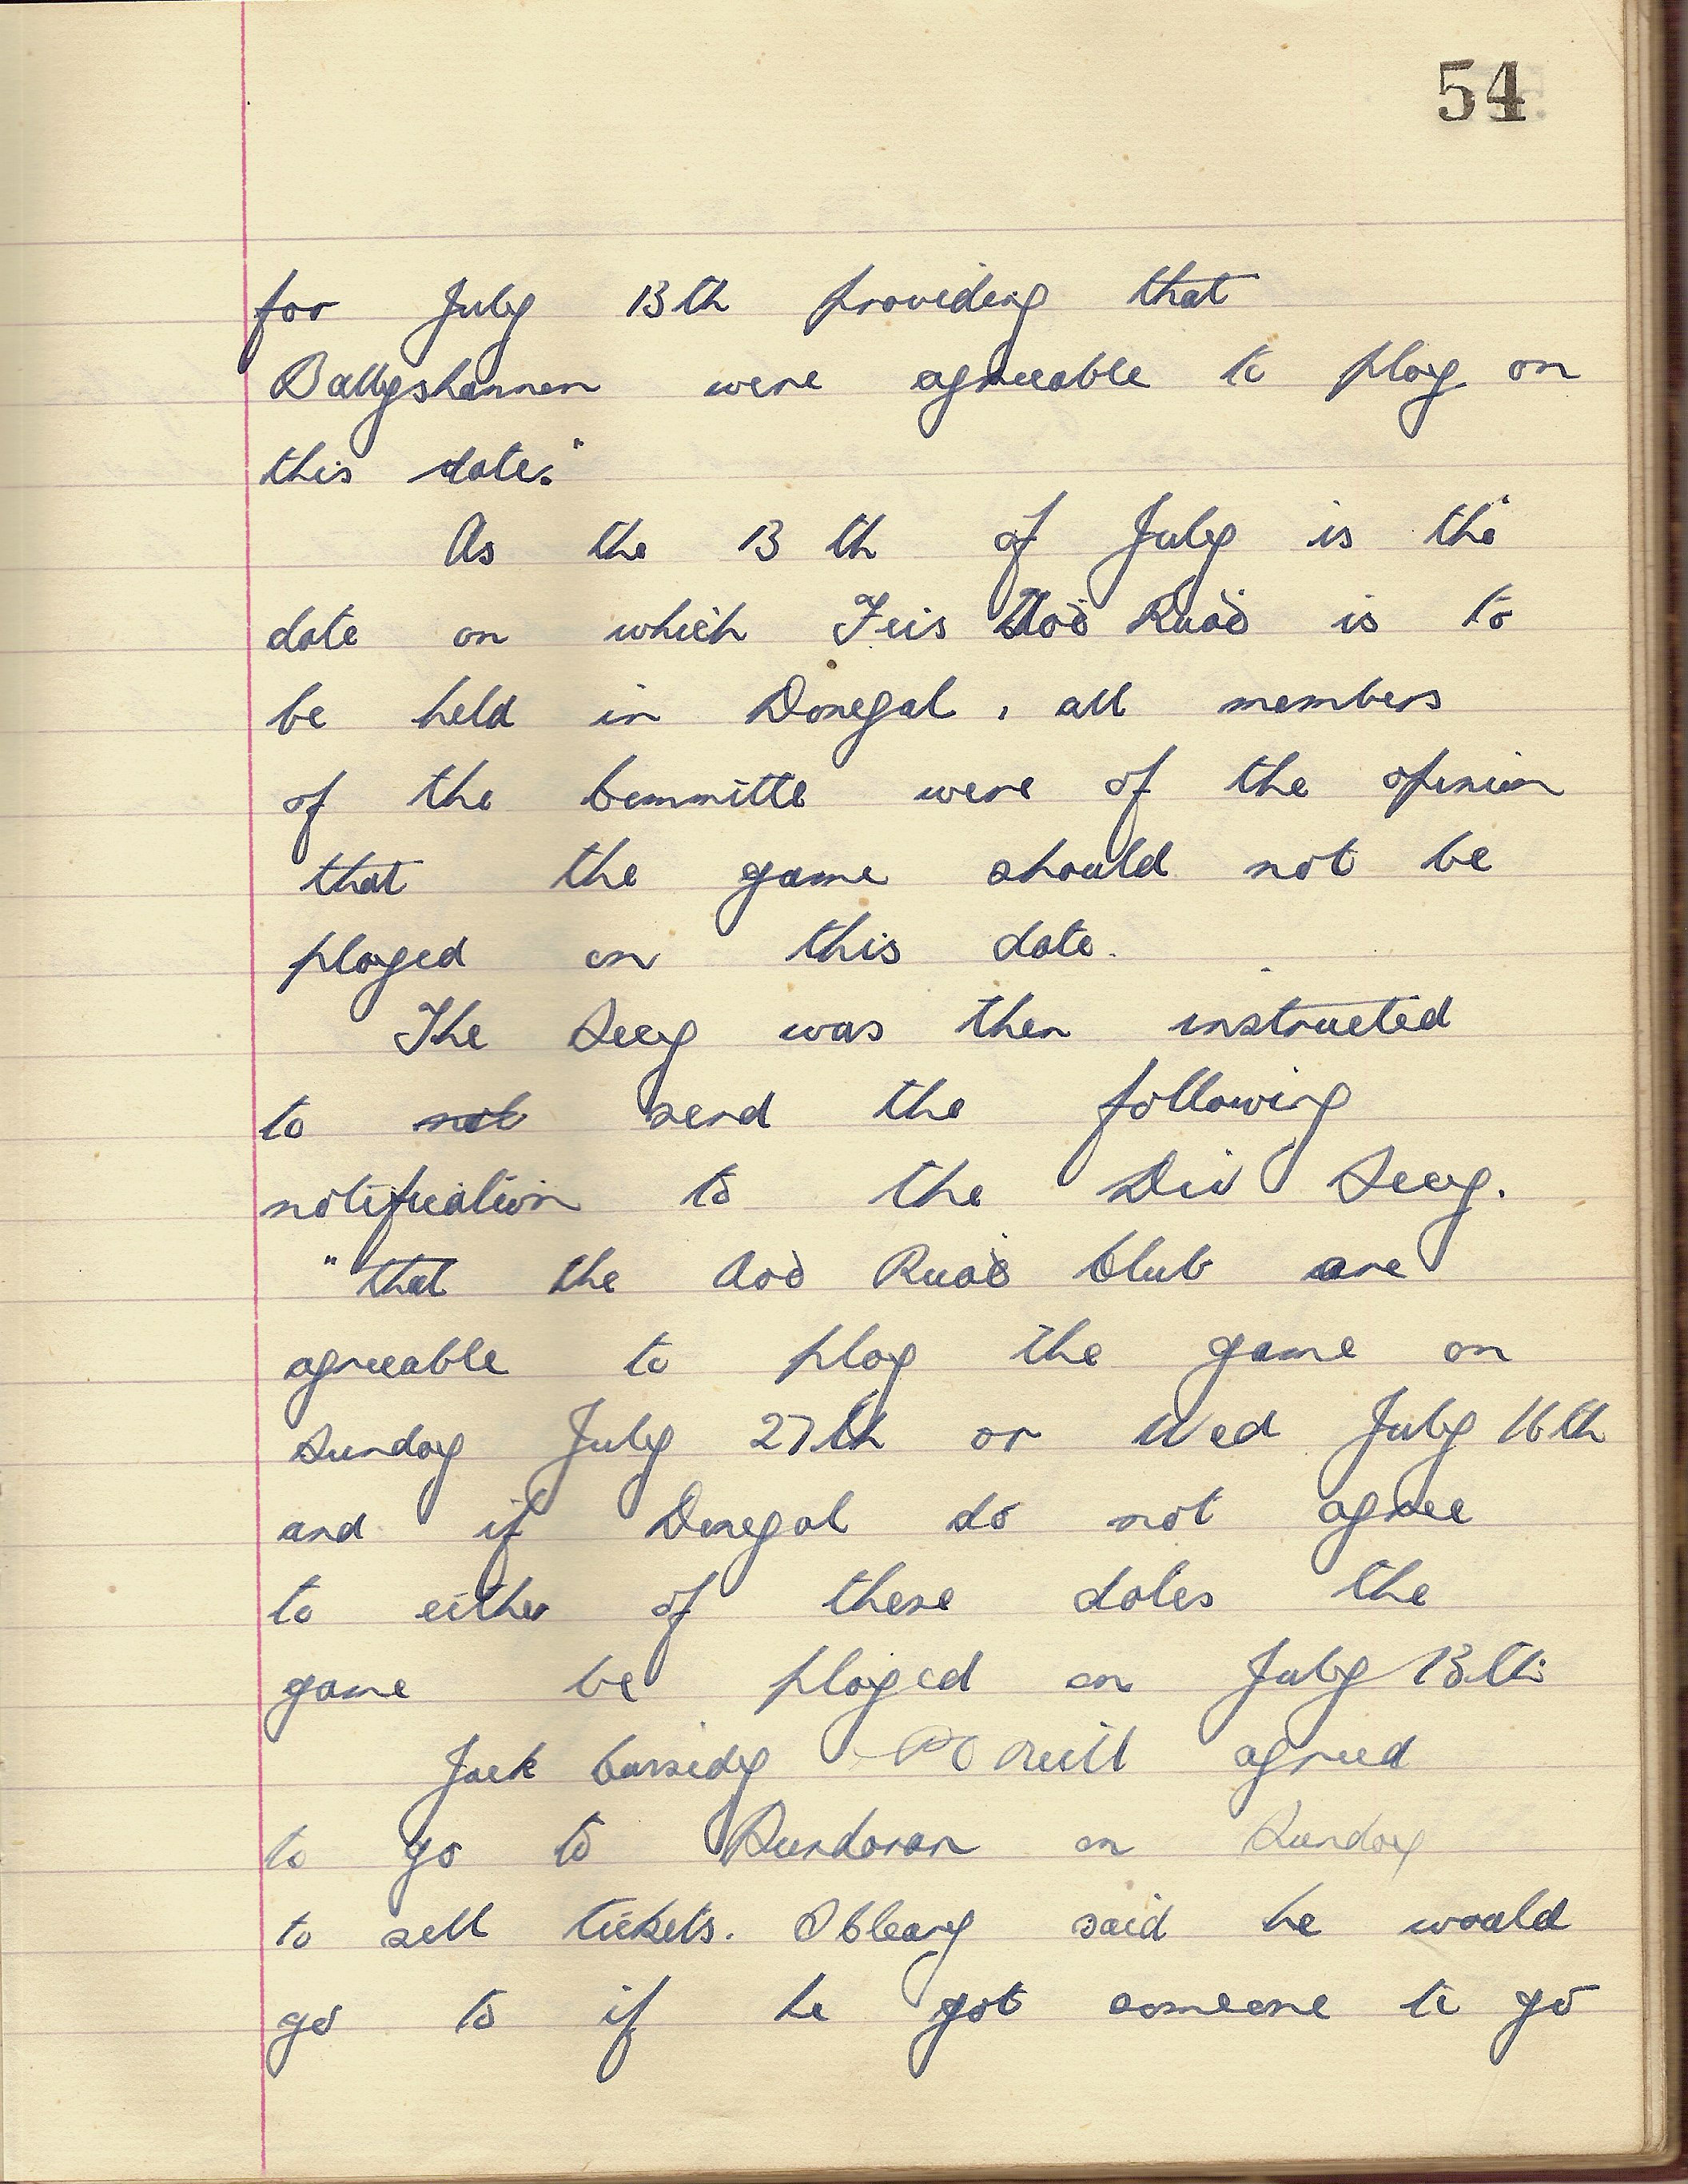 54
for July 13th providing that
Ballyshannon were agreeable to play on
this date."
As the 13th of July is the
date on which Feis Aoḋ Ruaḋ is to
be held in Donegal, all members
of the Committe were of the opinion
that the game should not be
played on this date.
The Secy was then instructed
to not send the following
notification to the Div Secy.
"that the Aoḋ Ruaḋ Club are
agreeable to play the game on
Sunday July 27th or Wed July 16th
and if Donegal do not agree
to either of these dates the
game be played on July 13th.
Jack Cassidy P O Neill agreed
to go to Bundoran on Sunday
to sell tickets. S Cleary said he would
go to if he got someone to go